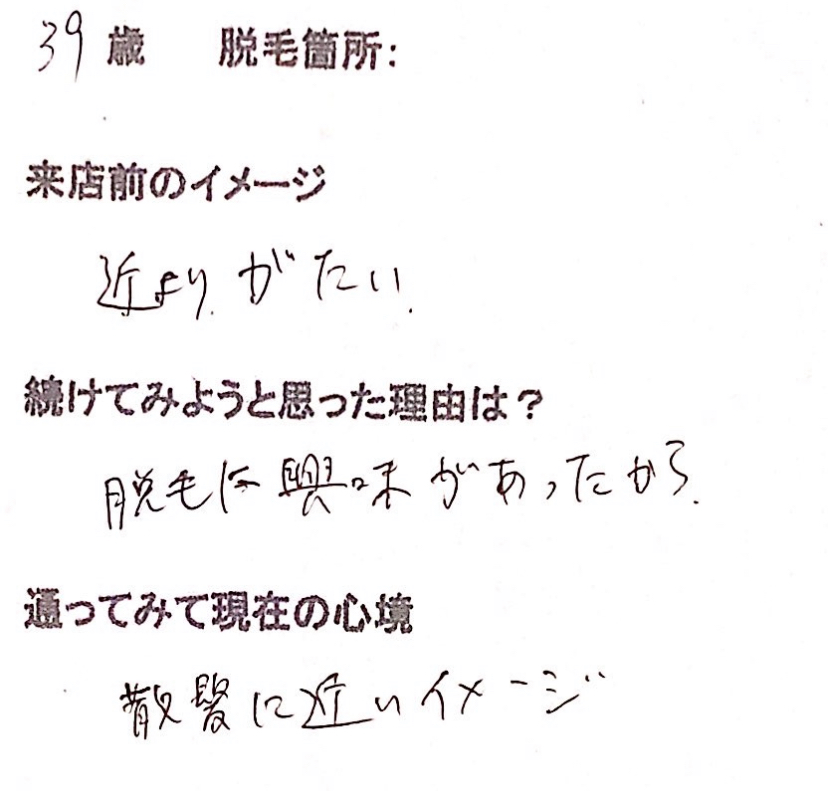 39歳 脱毛箇所:
来店前のイメージ
近よりがたい.
続けてみようと思った理由は？
脱毛に興味があったから.
通ってみて現在の心境
散髪に近いイメージ